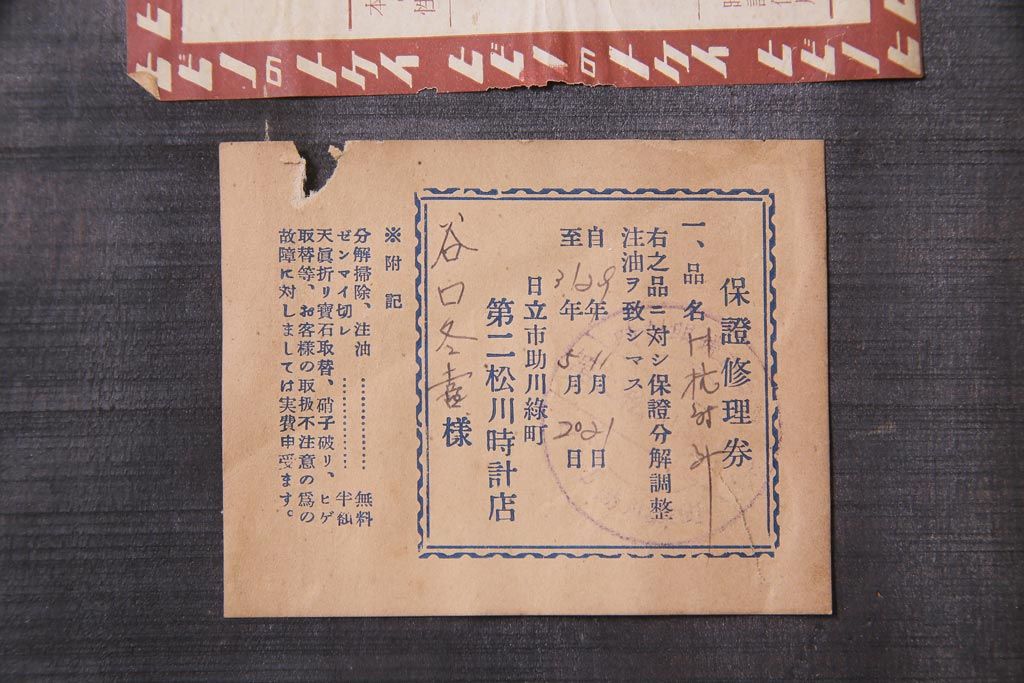 ヒビノのトケイ ヒビノのトケイ ヒビノ ヒ
保證修理券
一、品名
右之品ニ対シ保證分解調整
注油ヲ致シマス
自29年11月21日
至31年5月20日
日立市助川綠町
第二松川時計店
谷口冬壽様
※附記
分解掃除、注油………………無料
ゼンマイ切レ………………半額
天眞折リ寶石取替、硝子破リ、ヒゲ
取替等、お客様の取扱不注意の為の
故障に対しましては実費申受ます。